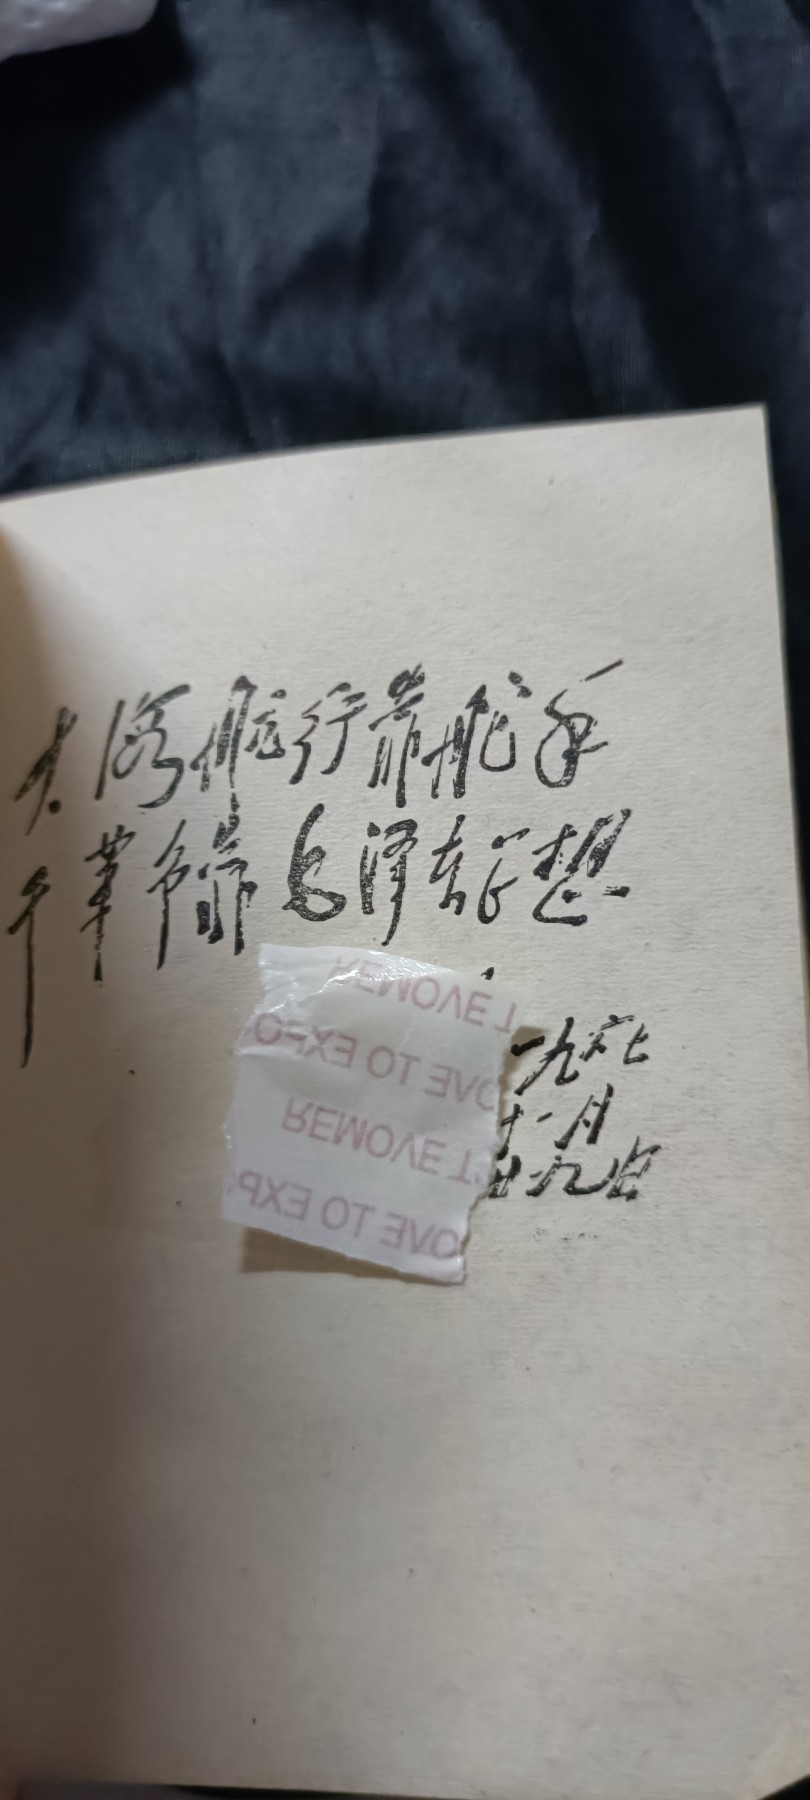 大海航行靠舵手
干革命靠毛泽东思想
REMOVE T
OVE TO EXPO
REMOVE T
OVE TO EXP
一九六七
十一月
廿九日